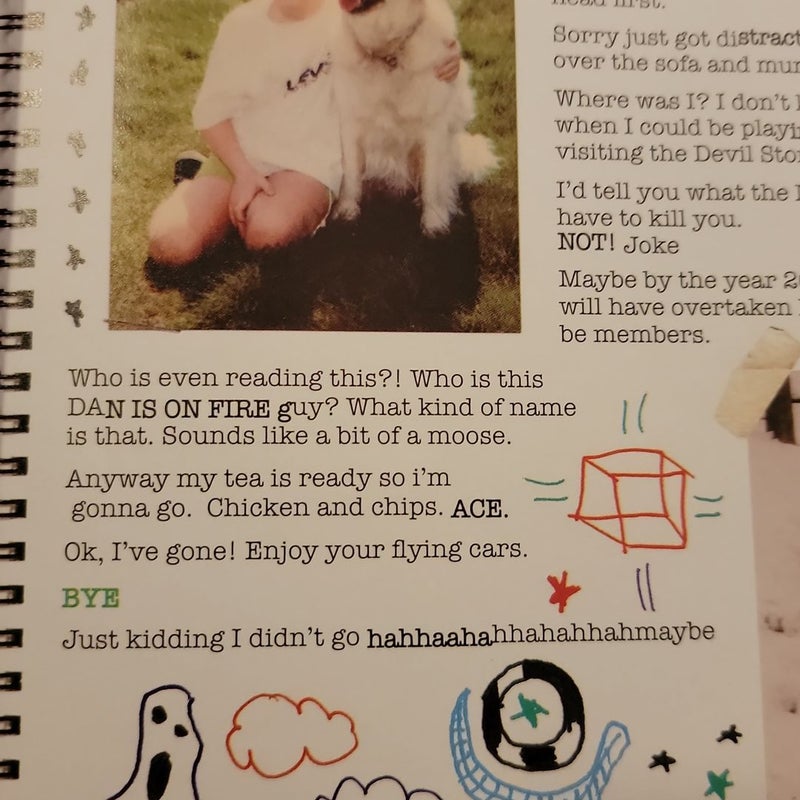 LEVI
Who is even reading this?! Who is this
DAN IS ON FIRE guy? What kind of name
is that. Sounds like a bit of a moose.
Anyway my tea is ready so i'm
gonna go. Chicken and chips. ACE.
Ok, I've gone! Enjoy your flying cars.
BYE
Just kidding I didn't go hahhaahahhahahhahmaybe
head first.
Sorry just got distract
over the sofa and mun
Where was I? I don't
when I could be playi
visiting the Devil Sto
I'd tell you what the
have to kill you.
NOT! Joke
Maybe by the year 2
will have overtaken
be members.